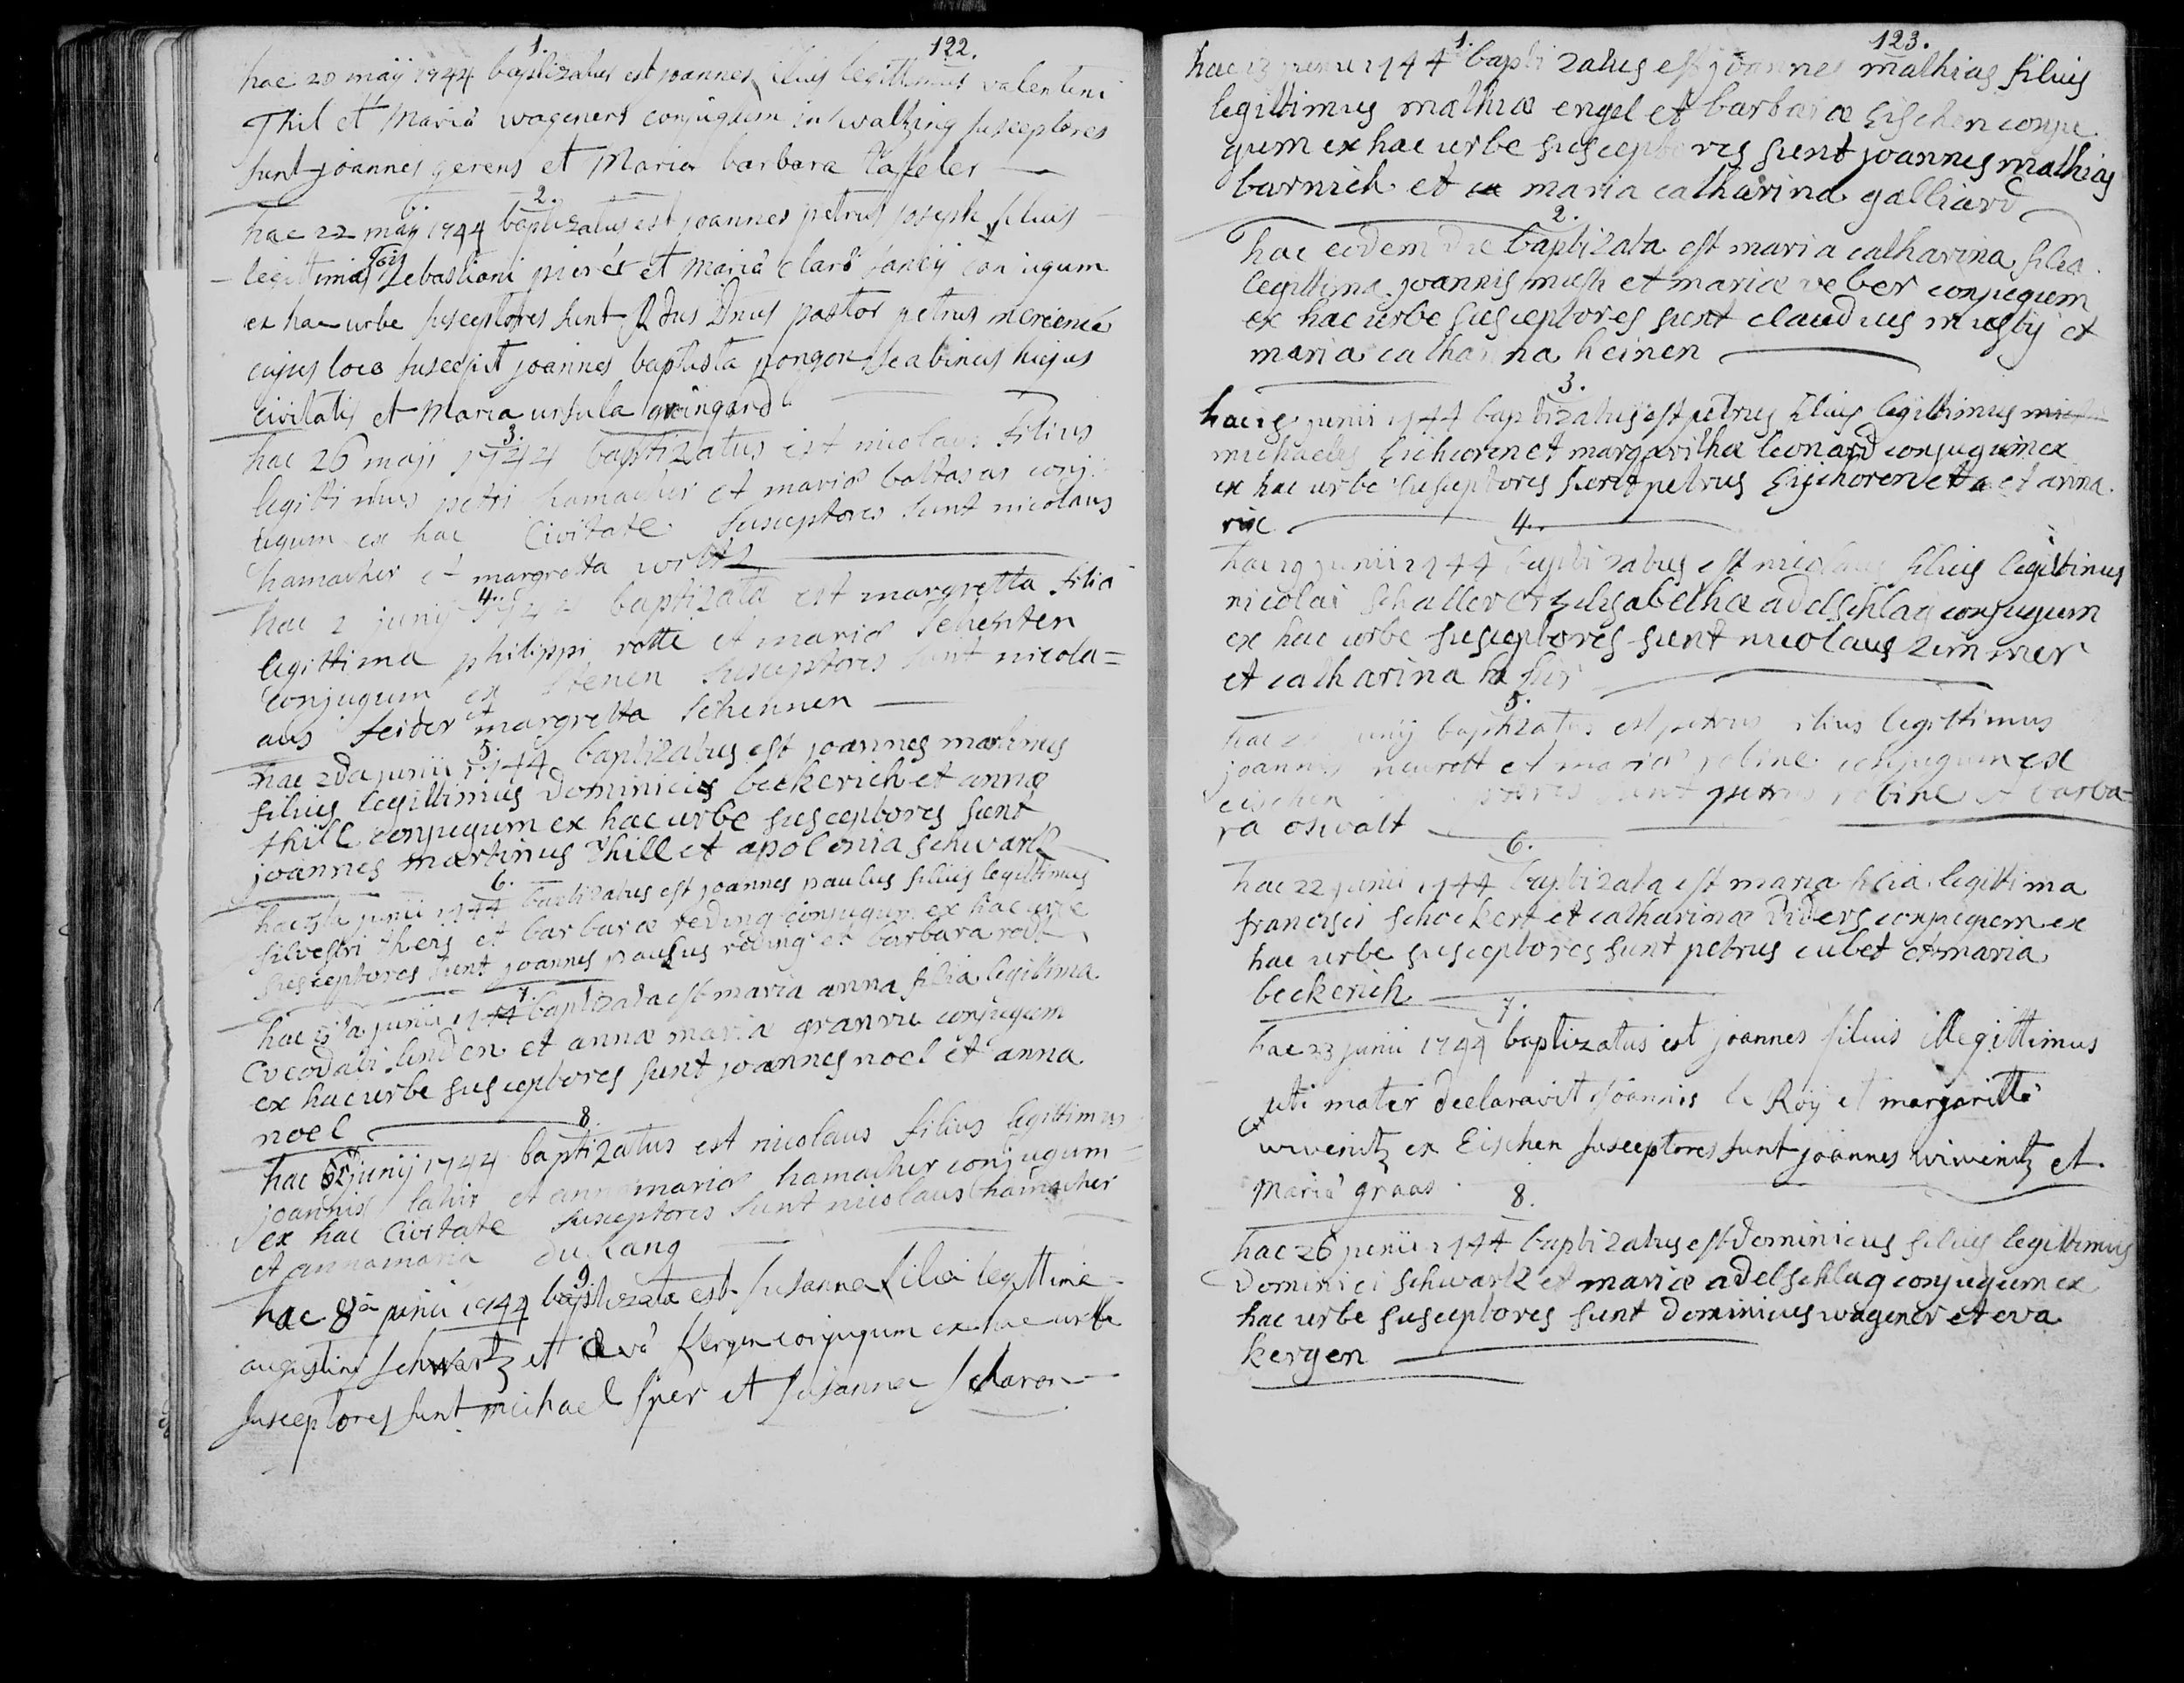 122.
1.
hac 20 maij 1744 baptizatus est joannes filius legittimus valentini
Thil et Maria wageners conjugum in waltzing susceptores
sunt joannes gerens et Maria barbara
2.
hac 22 maij 1744 baptizatus est joannes petrus joseph filius
legittimus Sebastiani pierét et Maria Clara conjugum
ex hac urbe susceptores sunt Rdus Dnus pastor petrus mercenié
cujus loco suscepit joannes baptista pongon scabinus hujus
civitatis et Maria ursula
3.
hac 26 maji 1744 baptizatus est nicolaus filius
legittimus petri hamacher et maria baltasar conj
ugum ex hac Civitate susceptores sunt nicolaus
hamacher et margretta
4.
hac 2 junij 1744 baptizata est margretta filia
legittima philippi rotti et maria schenten
conjugum ex stenen susceptores sunt nicola=
aus seider et margretta schennen
5.
hac 2da junii 1744 baptizatus est joannes martinus
filius legittimus Dominici beckerich et annæ
thill conjugum ex hac urbe susceptores sunt
joannes martinus thill et apolonia schwartz
6.
hac 5ta junii 1744 baptizatus est joannes paulus filius legittimus
silvestri theis et barbaræ reding conjugum ex hac urbe
susceptores sunt joannes paulus reding et barbara
7.
hac junii 1744 baptizata est maria anna filia legittima
linden et annæ mariæ granvu conjugum
ex hac urbe susceptores sunt joannes noel et anna
noel
8.
hac junij 1744 baptizatus est nicolaus filius legittimus
joannis lahir et annamaria hamacher conjugum
ex hac Civitate susceptores sunt nicolaus hamacher
et annamaria du Lang
9.
hac 8va junii 1744 baptizata est Susanna filia legittima
augustini schwartz et eva Kergen conjugum ex hac urbe
susceptores sunt michael sper et susanna
123.
1.
hac 13 junii 1744 baptizatus est joannes mathias filius
legittimus mathiæ engel et barbaræ Eischen conju
gum ex hac urbe susceptores sunt joannes mathias
barnich et maria catharina galliard
2.
hac eodem die baptizata est maria catharina filia
legittima joannis et mariæ veber conjugum
ex hac urbe susceptores sunt claudius et
maria catharina heinen
3.
hac junii 1744 baptizatus est petrus filius legittimus
michaelis Eichoren et margarithæ leonard conjugum ex
ex hac urbe susceptores sunt petrus Eichoren et a et anna
4.
hac 19 junii 1744 baptizatus est nicolaus filius legittimus
nicolai schaller et Elisabethæ adelschlag conjugum
ex hac urbe susceptores sunt nicolaus zimmer
et catharina
5.
hac junij baptizatus est petrus filius legittimus
joannis neurott et maria joline conjugum ex
eischen susceptores sunt petrus et barba=
ra oswalt
6.
hac 22 junii 1744 baptizata est maria filia legittima
francisci schockert et catharinæ Diders conjugum ex
hac urbe susceptores sunt petrus cubet et maria
beckerich
7.
hac 23 junii 1744 baptizatus est joannes filius illegittimus
uti mater declaravit joannis le Roÿ et margaritta
wivenitz ex Eischen susceptores sunt joannes wivenitz et
Maria graas
8.
hac 26 junii 1744 baptizatus est dominicus filius legittimus
Dominici schwartz et mariæ adelschlag conjugum ex
hac urbe susceptores sunt Dominicus wagener et eva
kergen